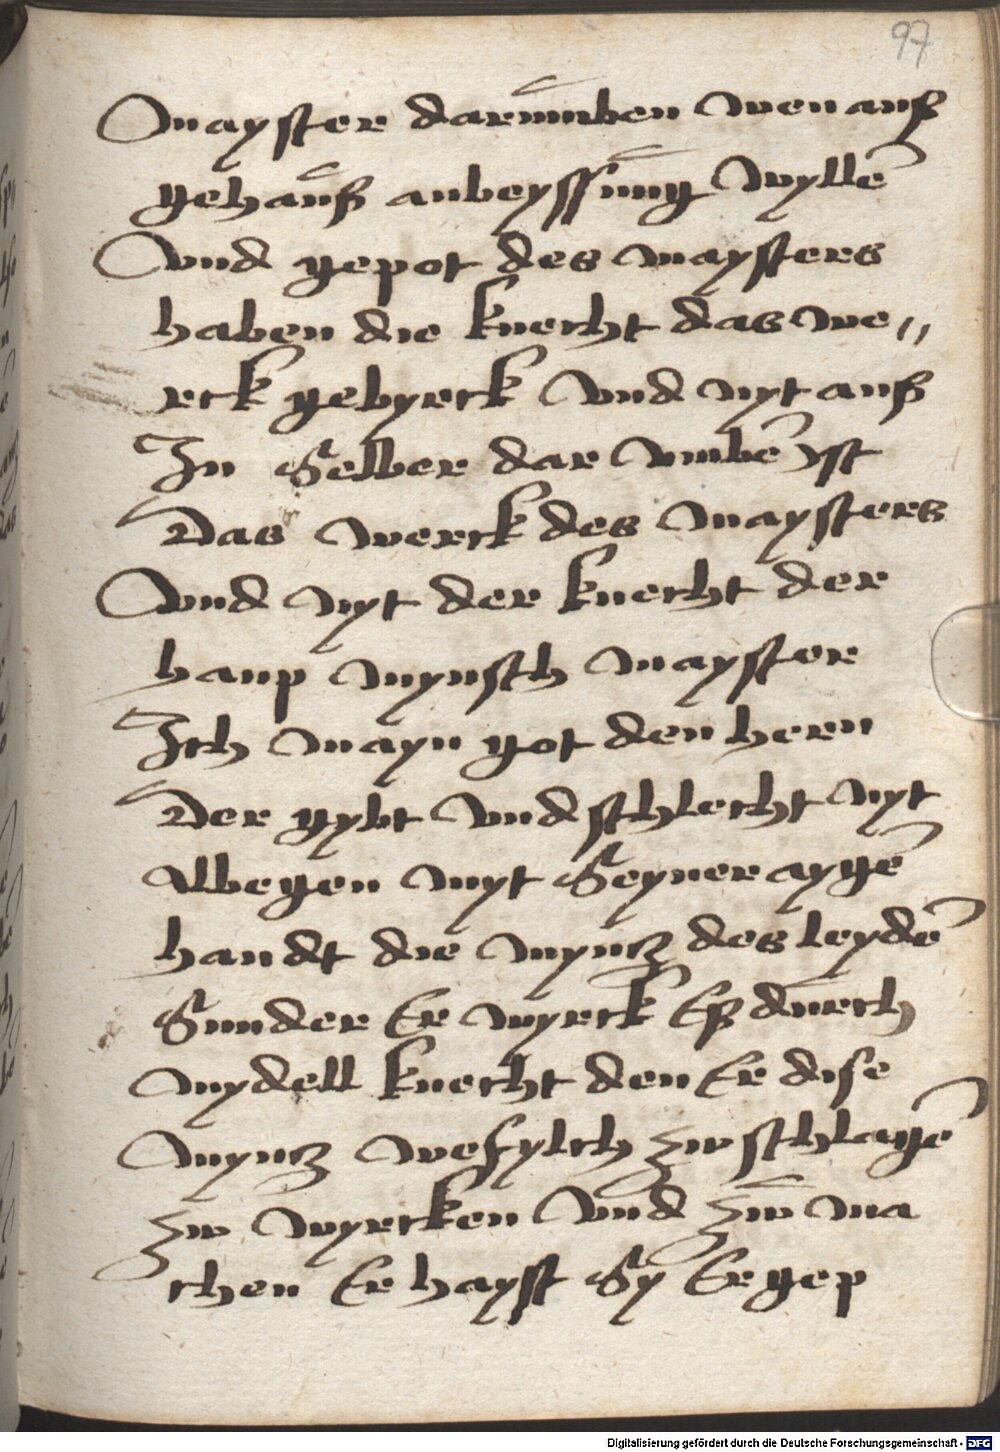 97
Mayster darumben wen auß
gehauß anbeyssung wyllē
Vnd gepot des maysters
haben die knecht das we〃
rck gebyrckt Vnd nyt auß
In Selber dar vmbē yst
Das werck des maysters
Vnd nyt der knecht der
haup mynsch mayster
Ich mayn got den hern
Der gybt Vnd schlecht nyt
Albegen myt Seyner aygē
handt die myncz des leydē
Sunder Er wyrck Eß durch
mydell knecht den Er dise
myncz wefylch zw schlagē
zw wyrcken Vnd zw ma
chen Er hayst Sy Er gep
Digitalisierung gefördert durch die Deutsche Forschungsgemeinschaft - DFG